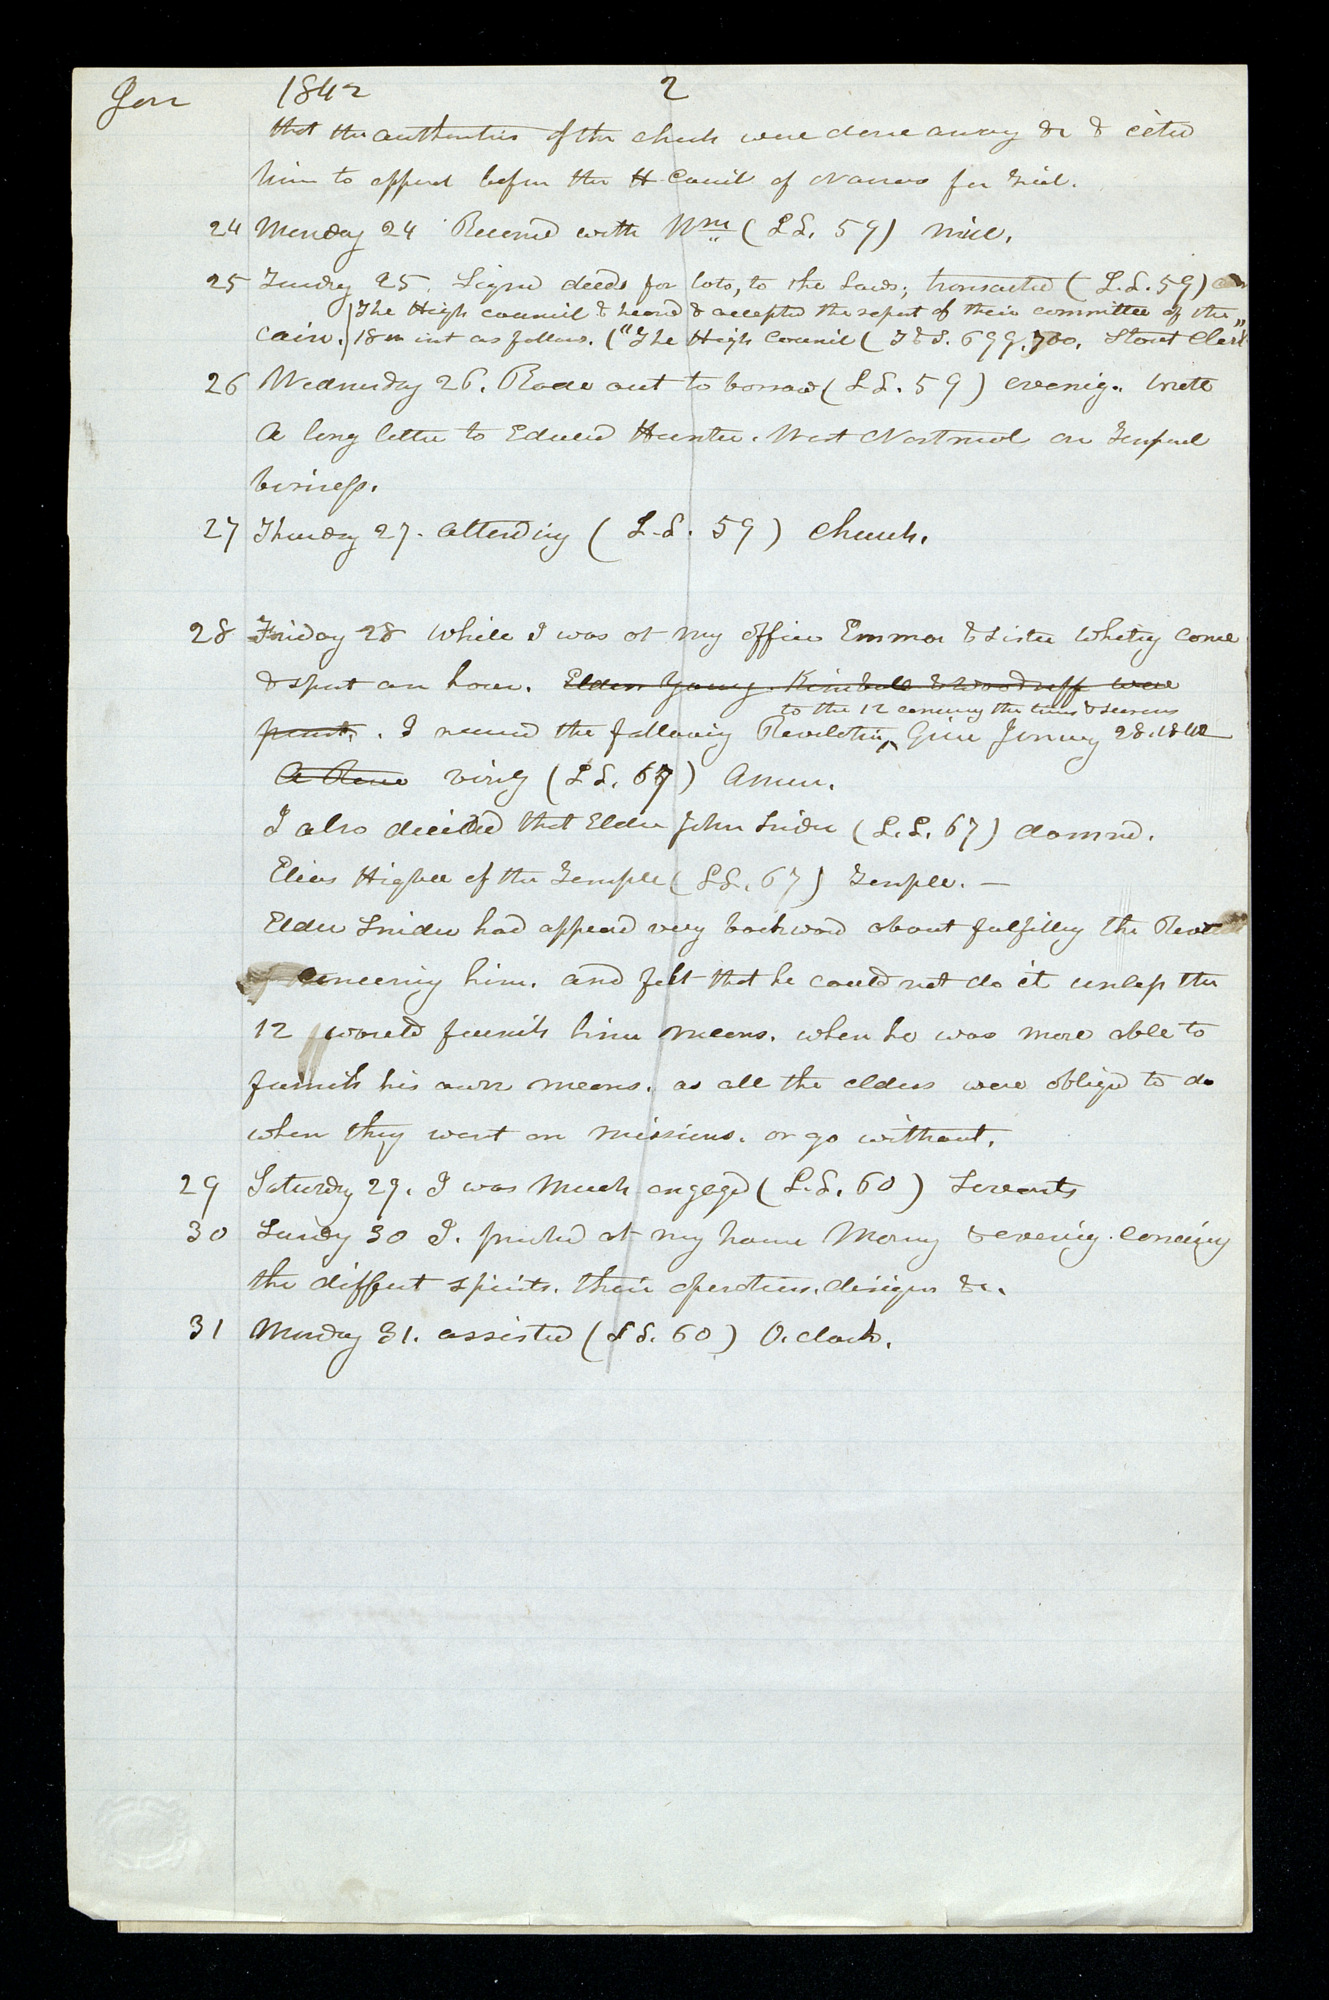 Jan 1842 2
that the authorities of the church were done away &c & cited
him to appear before the H Council of Nauvoo for trial.
24 Monday 24 Reckoned with Wm (L.L. 59) mill.
25 Tuesday 25. Signed deeds for lots, to the Laws; transacted (L.L. 59)
The High council & heard & accepted the report of their committee of the
cain. 18 inst as follows. ("The High Council (T&S. 699, 700, Stout Clerk"
26 Wednesday 26. Rode out to borrow (L.L. 59) evening. wrote
a long letter to Edward Hunter. West Nantmeal on Temporal
business.
27 Thursday 27. attending (L.L. 59) church.
28 Friday 28 while I was at my office Emma & Sister Whitney come
& spent an hour. Elders Young. Kimball & Woodruff were
to the 12 concerning the times & seasons
present. . I received the following Revelation ^ Given January 28. 1842
A Reve ving (L.L. 67) Amen.
I also decided that Elder John Snider (L.L. 67) damned.
Elias Higbee of the Temple (L.L. 67) Temple. —
Elder Snider had appeared very backward about fulfilling the
concerning him. and felt that he could not do it unless the
12 would furnish him means. when he was more able to
furnish his own means. as all the elders were obliged to do
when they went on missions. or go without.
29 Saturday 29. I was much engaged (L.L. 60) Servants
30 Sunday 30 I. preached at my house Morning & evening. concerning
the different spirits. their operations. designs &c.
31 Monday 31. assisted (L.L. 60) O. clock.